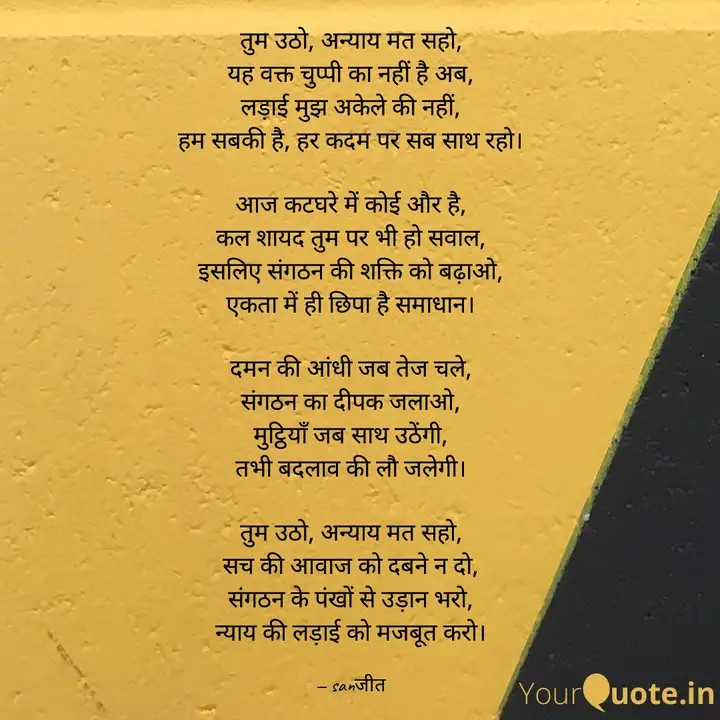 तुम उठो, अन्याय मत सहो,
यह वक्त चुप्पी का नहीं है अब,
लड़ाई मुझ अकेले की नहीं,
हम सबकी है, हर कदम पर सब साथ रहो।
आज कटघरे में कोई और है,
कल शायद तुम पर भी हो सवाल,
इसलिए संगठन की शक्ति को बढ़ाओ,
एकता में ही छिपा है समाधान।
दमन की आंधी जब तेज चले,
संगठन का दीपक जलाओ,
मुट्ठियाँ जब साथ उठेंगी,
तभी बदलाव की लौ जलेगी।
तुम उठो, अन्याय मत सहो,
सच की आवाज को दबने न दो,
संगठन के पंखों से उड़ान भरो,
न्याय की लड़ाई को मजबूत करो।
– sanजीत
YourQuote.in